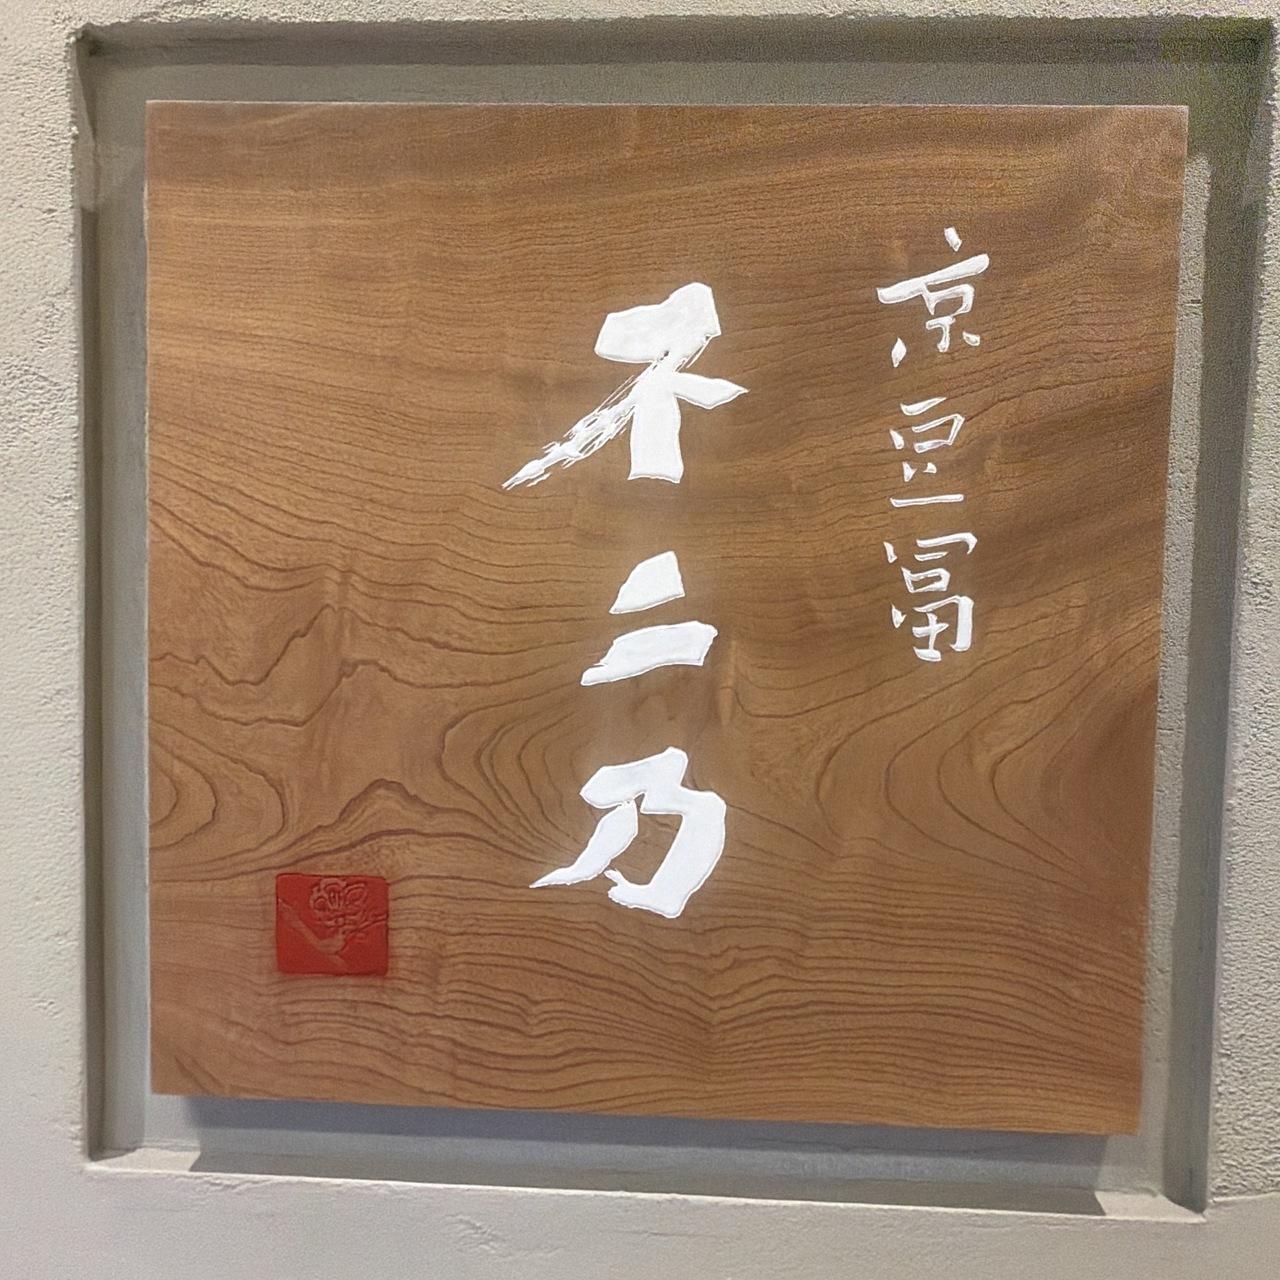 京豆冨
不二乃